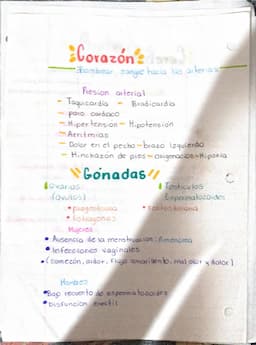 Corazón
Bombear sangre hacia las arterias
Presion arterial
- Taquicardia - Bradicardia
- paro cardiaco
- Hipertension - Hipotensión
- Arritmias
- Dolor en el pecho - brazo izquierdo
- Hinchazón de pies - oxigenación - Hipoxia
"Gónadas"
Ovarios Testiculos
(óvulos) Espermatozoides
• progesterona • testosterona
• Estrogenos
Mujeres
• Ausencia de la menstruación: Amenorrea
• Infecciones vaginales
• (comezón, ardor, flujo amarillento, mal olor y dolor)
Hombres
• Bajo recuento de espermatozoides
• Disfunción eréctil